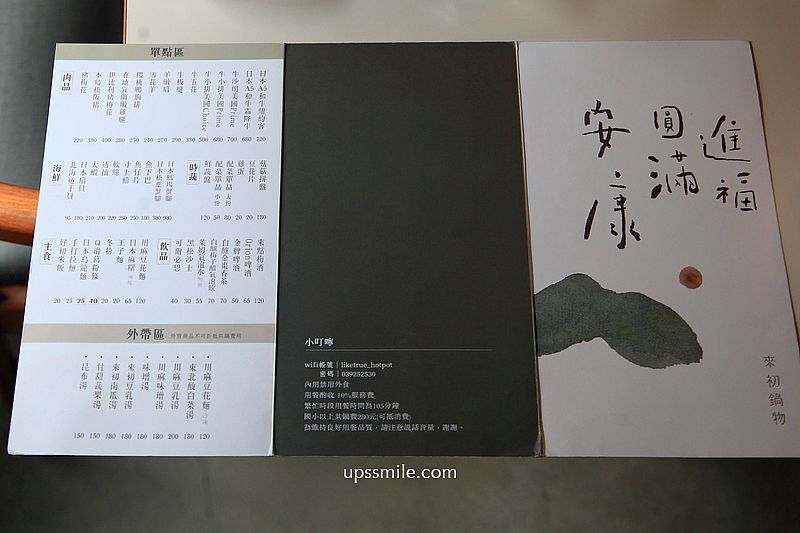 單點區
肉品
日本A5和牛紐約客 720
日本A5和牛霜降牛 680
牛沙朗美國Prime 700
牛小排美國Prime 680
牛小排美國Choice 500
牛五花 330
牛板腱 290
羊嫩肩 270
雪花羊 240
櫻桃鴨胸排 250
在地宜蘭嫩雞腿 280
伊比利豬梅花 400
本島松阪豬 380
豬梅花 220
海鮮
日本鱈場蟹腳 980
日本松葉蟹腳 380
魚下巴 300
魚仔片 230
寸上蛤 220
軟絲 200
透抽 200
大蝦 210
日本扇貝 180
北海道干貝 95
時蔬
菇菇拼盤 180
豆花片 20
雞蛋 20
配菜單品 大份 80
配菜單品 小份 50
鮮蔬盤 120
主食
川麻豆花麵 120
日本麻糬 65
王子麵 20
冬粉 20
Q滑葛粉條 40
日本烏龍麵 25
手打拉麵 25
好初米飯 20
飲品
來點梅酒 120
Orion啤酒 65
金牌啤酒 50
自釀金棗春茶 70
自釀梅子醋氣泡飲 70
萊姆氣泡水 55
黑松沙士 30
可爾必思 40
外帶區
外賣商品不可折抵共鍋費用
・川麻豆花麵 冷凍 120
・東北酸白菜湯 180
・川麻豆乳湯 200
・川麻味增湯 180
・味增湯 150
・來初豆乳湯 180
・來初南瓜湯 180
・甘甜蔬果湯 150
・昆布湯 150
小叮嚀
wifi帳號｜liketrue_hotpot
密碼｜039252530
內用禁用外食
用餐酌收 10%服務費
繁忙時段用餐時間為105分鐘
國小以上共鍋費280元(可抵消費)
為維持良好用餐品質，請注意說話音量，謝謝。
進福
圓滿
安康
來初鍋物
upssmile.com